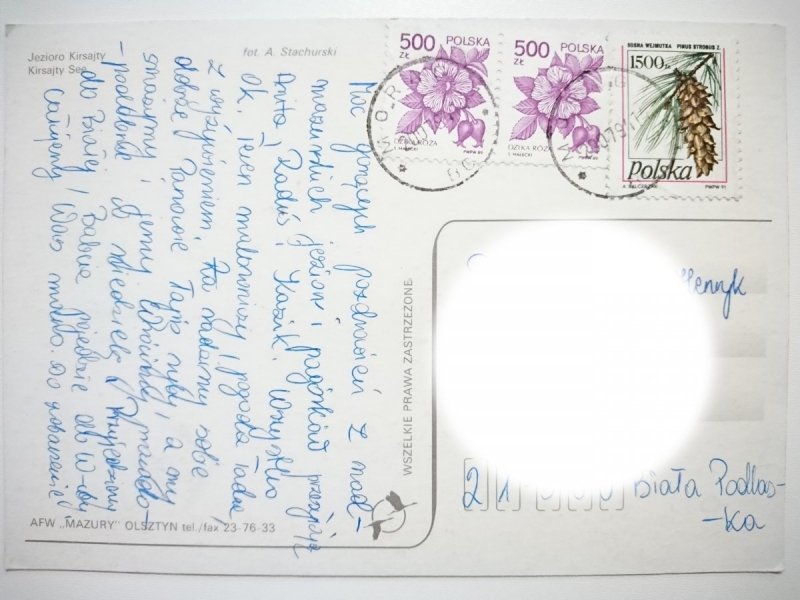 Jezioro Kirsajty
Kirsajty See
fot. A. Stachurski
500 ZŁ POLSKA
DZIKA RÓŻA
500 ZŁ POLSKA
DZIKA RÓŻA
SOSNA WEJMUTKA PINUS STROBUS L.
1500 ZŁ
Polska
Moc gorących pozdrowień z nad-
mazurskich jezior i pagórków przesyłają
Anita, Raduś i Kazik. Wszystko
OK, teren malowniczy, pogoda ładna,
z wyżywieniem też radzimy sobie
dobrze. Panowie łapią ryby, a my
smażymy i jemy. Wrócimy prawdo-
podobnie w niedzielę. Przyjedziemy
do Białej, Babcia pojedzie do W-wy
Całujemy Was mocno. Do zobaczenia!
WSZELKIE PRAWA ZASTRZEŻONE
Henryk
21-500 Biała Podlas-
-ka
AFW „MAZURY" OLSZTYN tel./fax 23-76-33